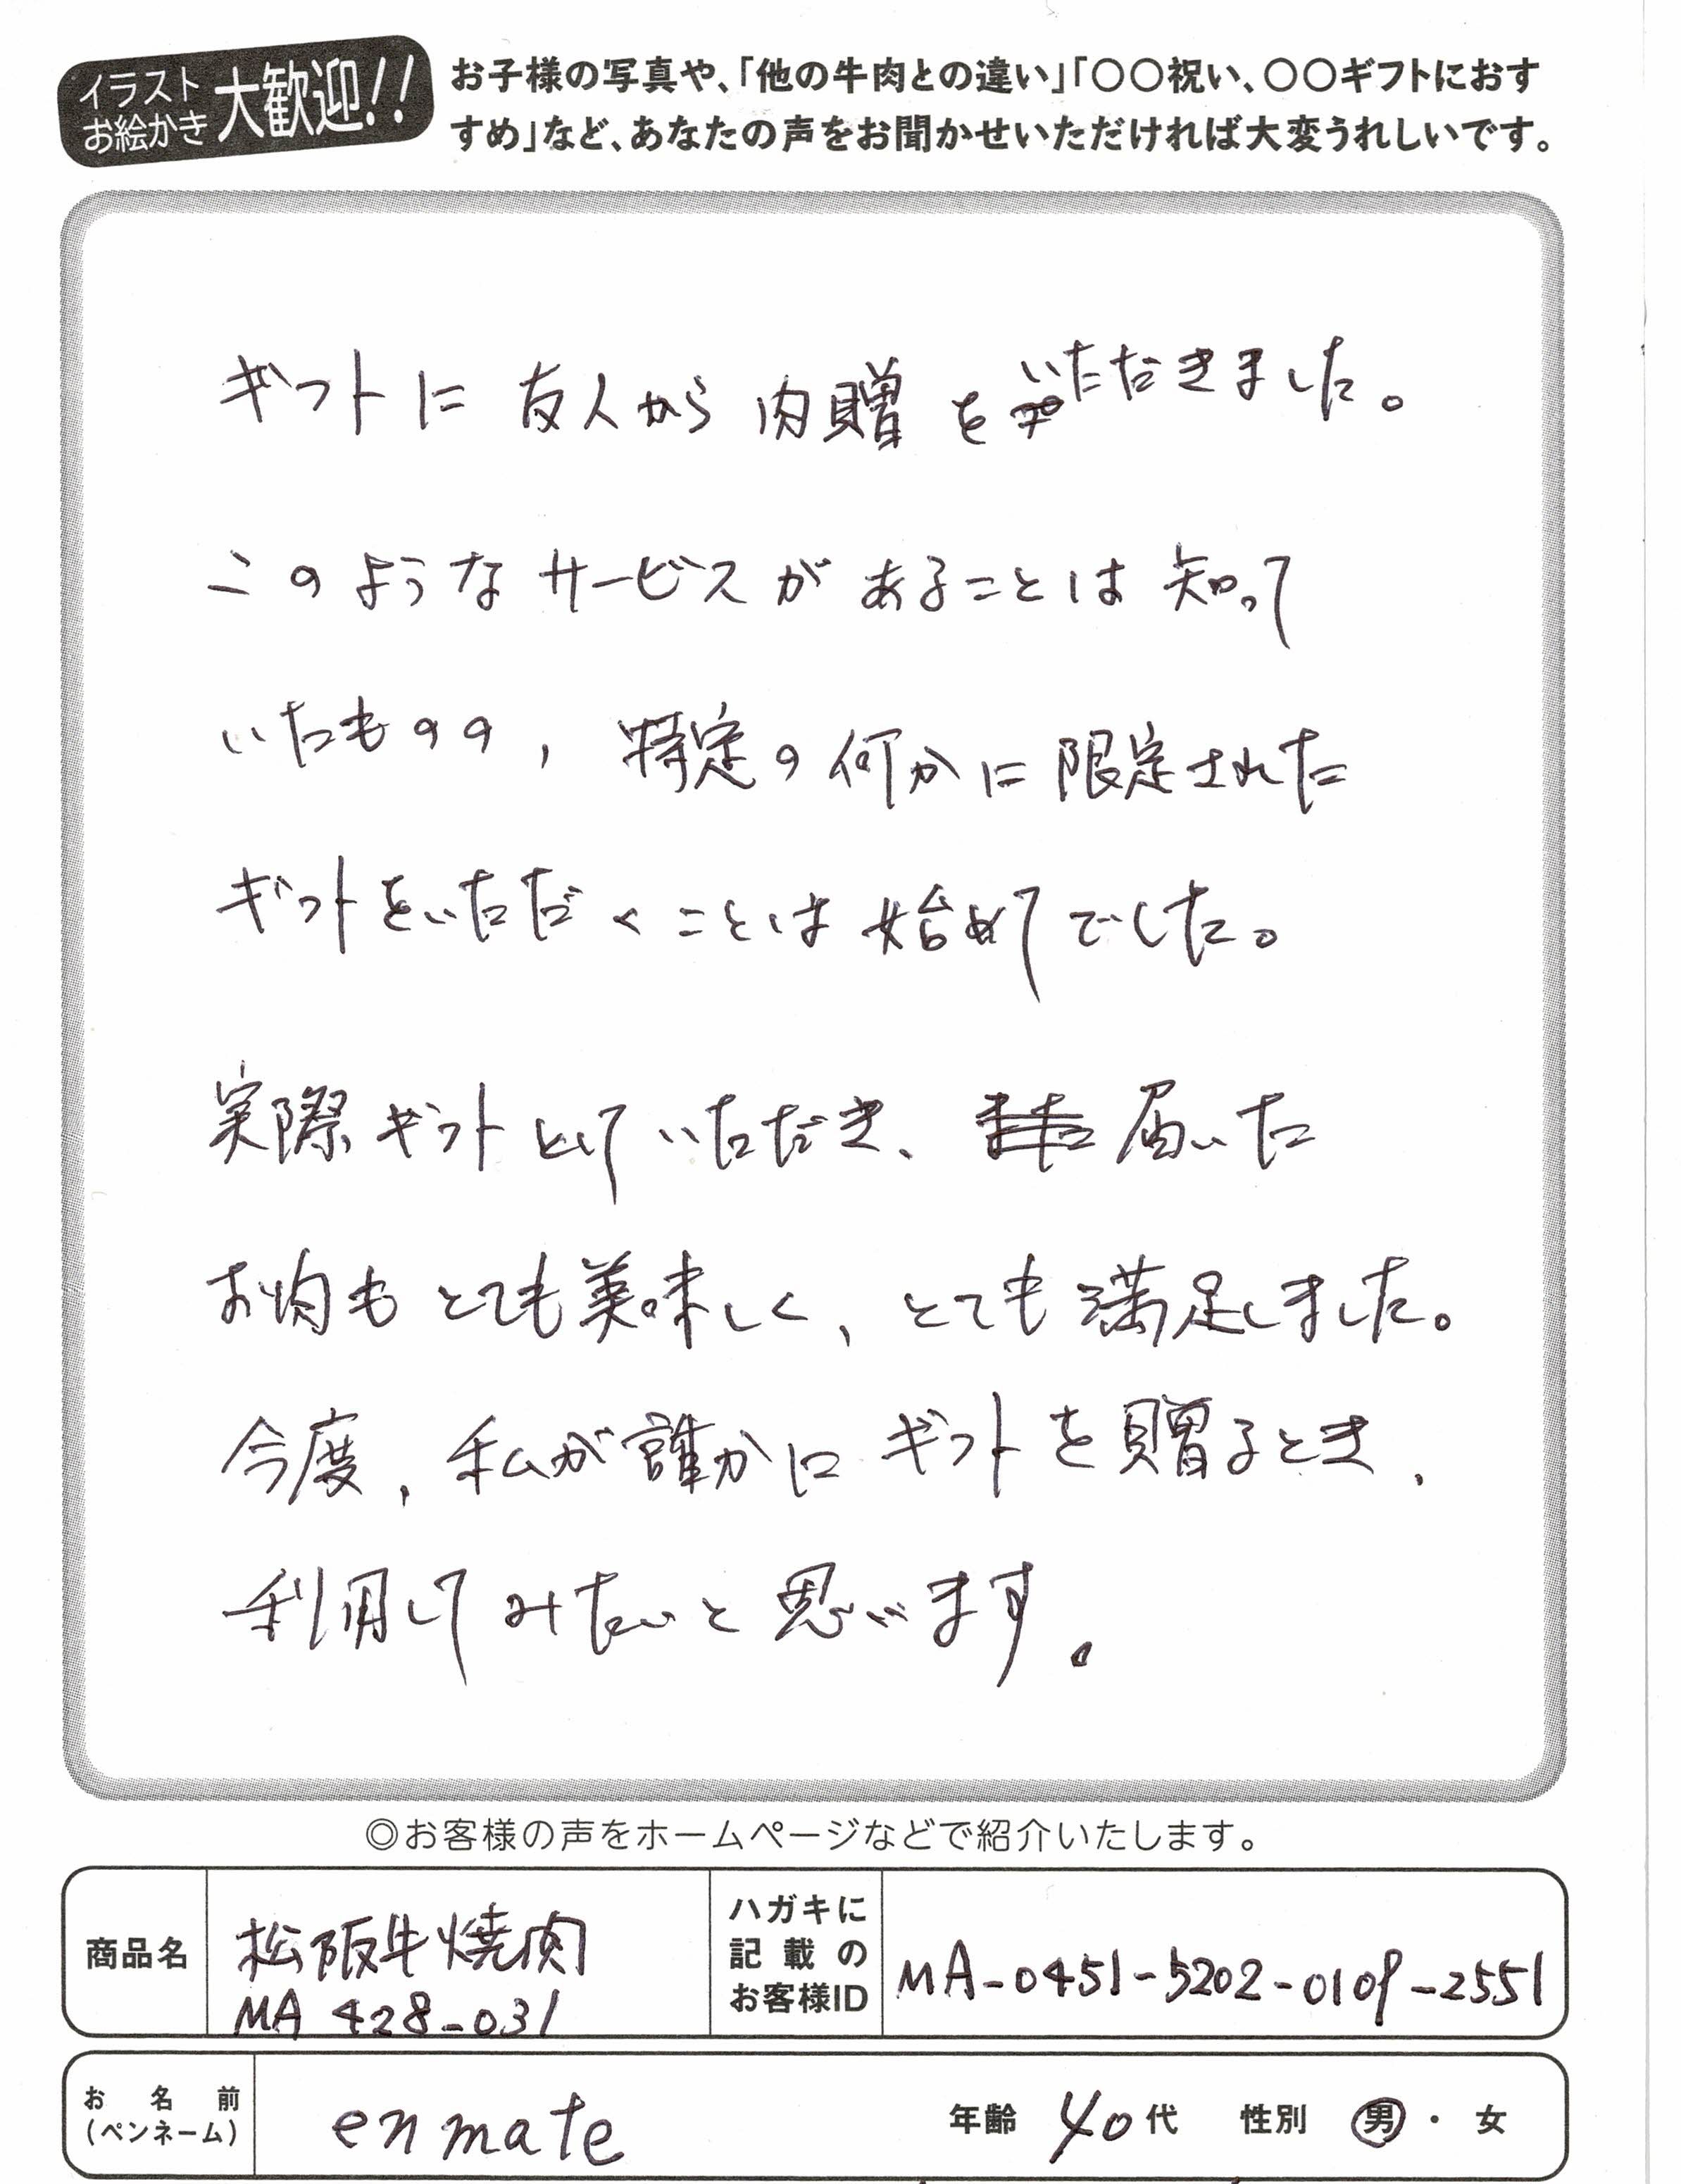 イラスト
お絵かき
大歓迎!!
お子様の写真や、「他の牛肉との違い」「〇〇祝い、〇〇ギフトにおす
すめ」など、あなたの声をお聞かせいただければ大変うれしいです。
ギフトに友人から肉贈をいただきました。
このようなサービスがあることは知って
いたものの,特定の何かに限定された
ギフトをいただくことは始めてでした。
実際ギフトとしていただき、届いた
お肉もとても美味しく、とても満足しました。
今度,私が誰かにギフトを贈るとき,
利用してみたいと思います。
◎お客様の声をホームページなどで紹介いたします。
商品名
松阪牛焼肉
MA 428-031
ハガキに
記載の
お客様ID
MA-0451-5202-0109-2551
お名前
(ペンネーム)
enmate
年齢 40代 性別 男・女